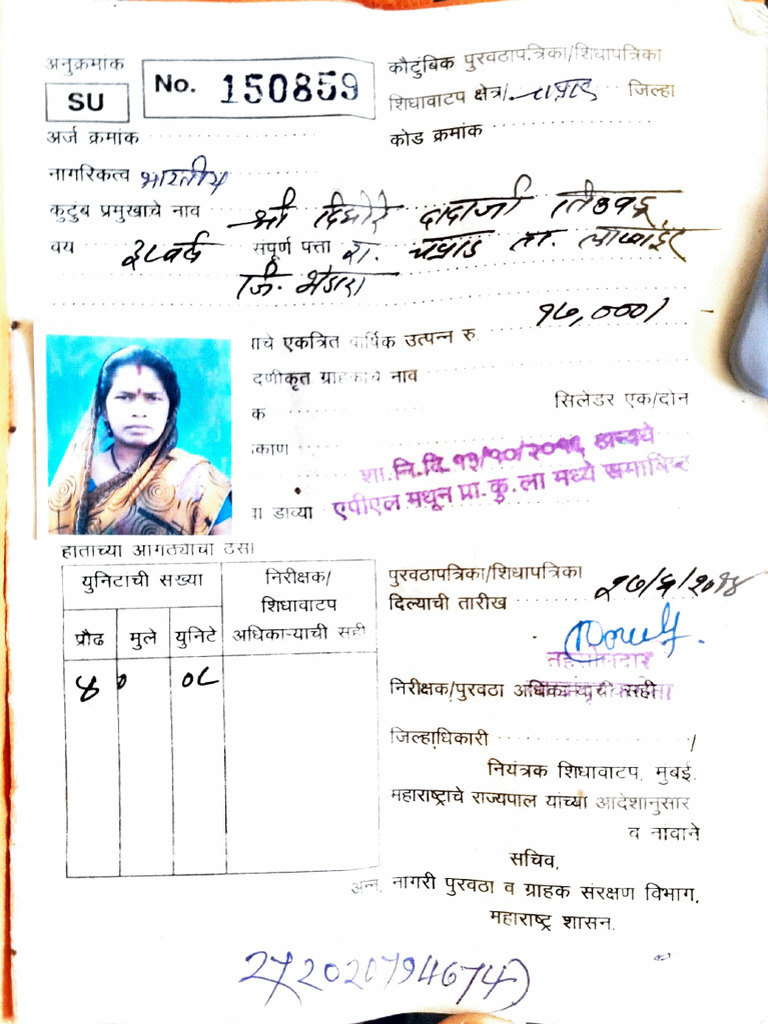 अनुक्रमांक
SU
No. 150859
कौटुंबिक पुरवठापत्रिका/शिधापत्रिका
शिधावाटप क्षेत्र/ जिल्हा
अर्ज क्रमांक
कोड क्रमांक
नागरिकत्व भारतीय
कुटुंब प्रमुखाचे नाव श्री दिघोरे दादाजी
वय ३८ वर्ष संपूर्ण पत्ता रा. चप्राड ता. लाखांदूर
जि. भंडारा
ाचे एकत्रित वार्षिक उत्पन्न रु. १७,०००/
दणीकृत ग्राहकाचे नाव
क सिलेंडर एक/दोन
काण
शा.नि.दि. १३/१०/२०१६ अन्वये
एपीएल मधून प्रा.कु.ला मध्ये समाविष्ट
ा डाव्या
हाताच्या आंगठ्याचा ठसा
युनिटाची संख्या
निरीक्षक/
शिधावाटप
अधिकाऱ्याची सही
प्रौढ मुले युनिटे
४ ० ०८
पुरवठापत्रिका/शिधापत्रिका
दिल्याची तारीख २७/६/२०१४
तहसीलदार
निरीक्षक/पुरवठा अधिकाऱ्याची सही
जिल्हाधिकारी /
नियंत्रक शिधावाटप, मुंबई.
महाराष्ट्राचे राज्यपाल यांच्या आदेशानुसार
व नावाने
सचिव,
अन्न, नागरी पुरवठा व ग्राहक संरक्षण विभाग,
महाराष्ट्र शासन.
272020794674